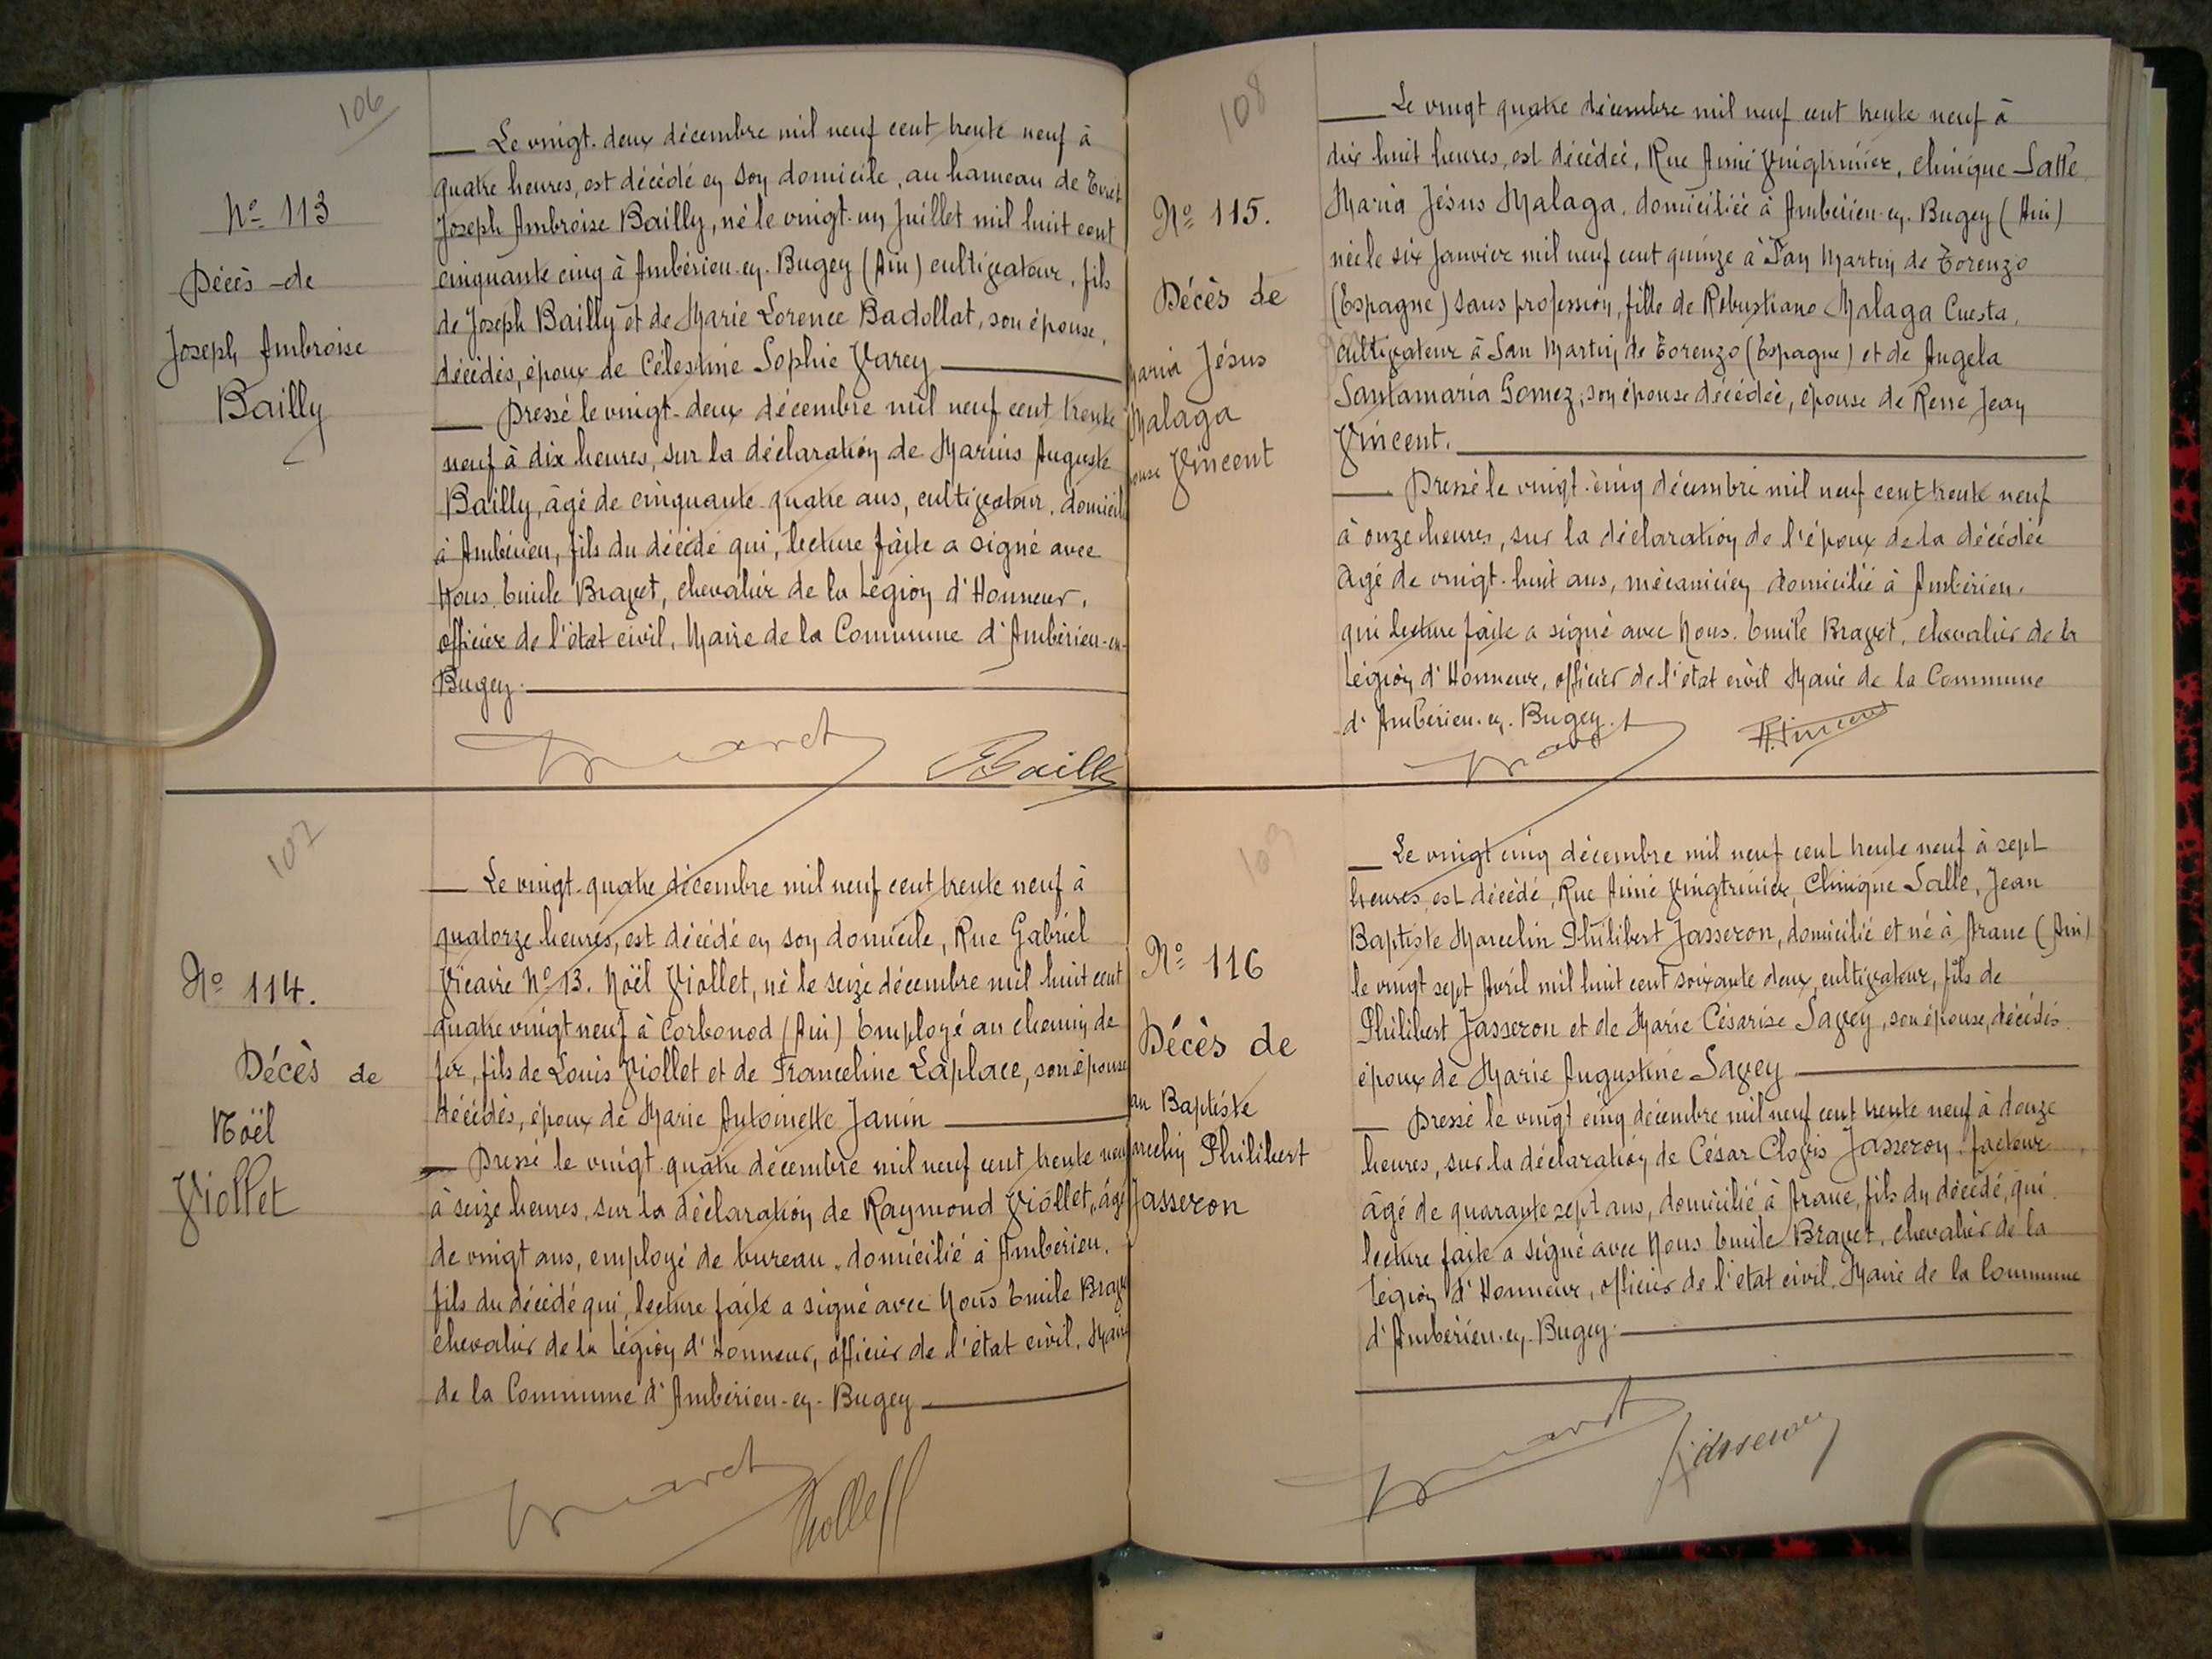 106
Nº 113
Décès de
Joseph Ambroise
Bailly
Le vingt-deux décembre mil neuf cent trente neuf à
quatre heures, est décédé en son domicile, au hameau de
Joseph Ambroise Bailly, né le vingt-un Juillet mil huit cent
cinquante cinq à Ambérieu-en-Bugey (Ain) cultivateur, fils
de Joseph Bailly et de Marie Lorence Badollat, son épouse,
décédés, époux de Célestine Sophie Varey
Dressé le vingt-deux décembre mil neuf cent trente
neuf à dix heures, sur la déclaration de Marius Auguste
Bailly, âgé de cinquante-quatre ans, cultivateur, domicil
à Ambérieu, fils du décédé qui, lecture faite a signé avec
Nous Emile Bravet, chevalier de la Légion d'Honneur,
officier de l'état civil, Maire de la Commune d'Ambérieu-en-
Bugey.
Bailly
107
Nº 114.
Décès de
Noël
Viollet
Le vingt-quatre décembre mil neuf cent trente neuf à
quatorze heures, est décédé en son domicile, Rue Gabriel
Vicaire Nº 13. Noël Viollet, né le seize décembre mil huit cent
quatre vingt neuf à Corbonod (Ain) Employé au chemin de
fer, fils de Louis Viollet et de Franceline Laplace, son épouse
décédés, époux de Marie Antoinette Janin
Dressé le vingt quatre décembre mil neuf cent trente neuf
à seize heures, sur la déclaration de Raymond Viollet, âgé
de vingt ans, employé de bureau, domicilié à Ambérieu,
fils du décédé qui, lecture faite a signé avec Nous Emile Brave
chevalier de la Légion d'Honneur, officier de l'état civil, Maire
de la Commune d'Ambérieu-en-Bugey
Viollet
108
Nº 115.
Décès de
Maria Jésus
Malaga
ouse Vincent
Le vingt quatre décembre mil neuf cent trente neuf à
dix huit heures, est décédée, Rue Aimé Vingtrinier, Clinique Salle,
Maria Jésus Malaga, domiciliée à Ambérieu-en-Bugey (Ain)
née le six Janvier mil neuf cent quinze à San Martin de Torenzo
(Espagne) sans profession, fille de Robustiano Malaga Cuesta,
cultivateur à San Martin de Torenzo (Espagne) et de Angela
Santamaria Gomez, son épouse décédée, épouse de René Jean
Vincent.
Dressé le vingt-cinq décembre mil neuf cent trente neuf
à onze heures, sur la déclaration de l'époux de la décédée
âgé de vingt-huit ans, mécanicien domicilié à Ambérieu,
qui lecture faite a signé avec Nous. Emile Bravet, chevalier de la
Légion d'Honneur, officier de l'état civil Maire de la Commune
d'Ambérieu-en-Bugey.
R. Vincent
109
Nº 116
Décès de
an Baptiste
arcelin Philibert
Jasseron
Le vingt cinq décembre mil neuf cent trente neuf à sept
heures, est décédé, Rue Aimé Vingtrinier, Clinique Salle, Jean
Baptiste Marcelin Philibert Jasseron, domicilié et né à Aranc (Ain)
le vingt sept Avril mil huit cent soixante deux, cultivateur, fils de
Philibert Jasseron et de Marie Césarise Savey, son épouse, décédés
époux de Marie Augustine Savey
Dressé le vingt cinq décembre mil neuf cent trente neuf à douze
heures, sur la déclaration de César Clovis Jasseron, facteur
âgé de quarante sept ans, domicilié à Aranc, fils du décédé, qui
lecture faite a signé avec Nous Emile Bravet, chevalier de la
Légion d'Honneur, officier de l'état civil, Maire de la Commune
d'Ambérieu-en-Bugey.
Jasseron